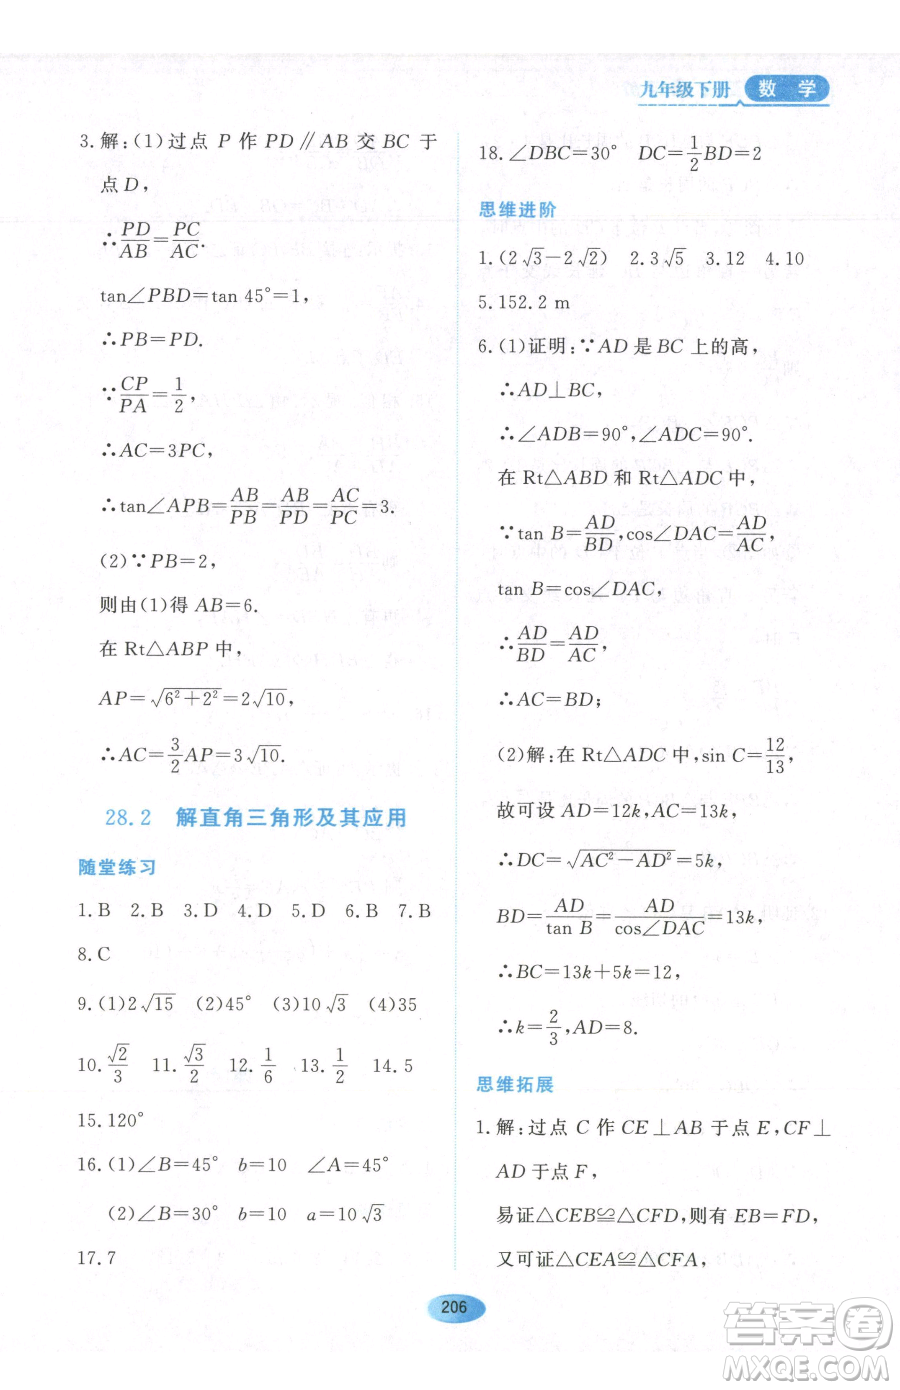 九年级下册 数学
3.解:(1)过点 P 作 PD∥AB 交 BC 于
点 D,
∴PD/AB=PC/AC.
tan∠PBD=tan 45°=1,
∴PB=PD.
∵CP/PA=1/2,
∴AC=3PC,
∴tan∠APB=AB/PB=AB/PD=AC/PC=3.
(2)∵PB=2,
则由(1)得 AB=6.
在 Rt△ABP 中,
AP=√(6²+2²)=2√10,
∴AC=3/2AP=3√10.
28.2 解直角三角形及其应用
随堂练习
1.B 2.B 3.D 4.A 5.D 6.B 7.B
8.C
9.(1)2√15 (2)45° (3)10√3 (4)35
10.√2/3 11.√3/2 12.1/6 13.1/2 14.5
15.120°
16.(1)∠B=45° b=10 ∠A=45°
(2)∠B=30° b=10 a=10√3
17.7
18.∠DBC=30° DC=1/2BD=2
思维进阶
1.(2√3-2√2) 2.3√5 3.12 4.10
5.152.2 m
6.(1)证明:∵AD 是 BC 上的高,
∴AD⊥BC,
∴∠ADB=90°,∠ADC=90°.
在 Rt△ABD 和 Rt△ADC 中,
∵tan B=AD/BD,cos∠DAC=AD/AC,
tan B=cos∠DAC,
∴AD/BD=AD/AC,
∴AC=BD;
(2)解:在 Rt△ADC 中,sin C=12/13,
故可设 AD=12k,AC=13k,
∴DC=√(AC²-AD²)=5k,
BD=AD/tan B=AD/cos∠DAC=13k,
∴BC=13k+5k=12,
∴k=2/3,AD=8.
思维拓展
1.解:过点 C 作 CE⊥AB 于点 E,CF⊥
AD 于点 F,
易证△CEB≌△CFD,则有 EB=FD,
又可证△CEA≌△CFA,
206
答案圈
MXQE.COM